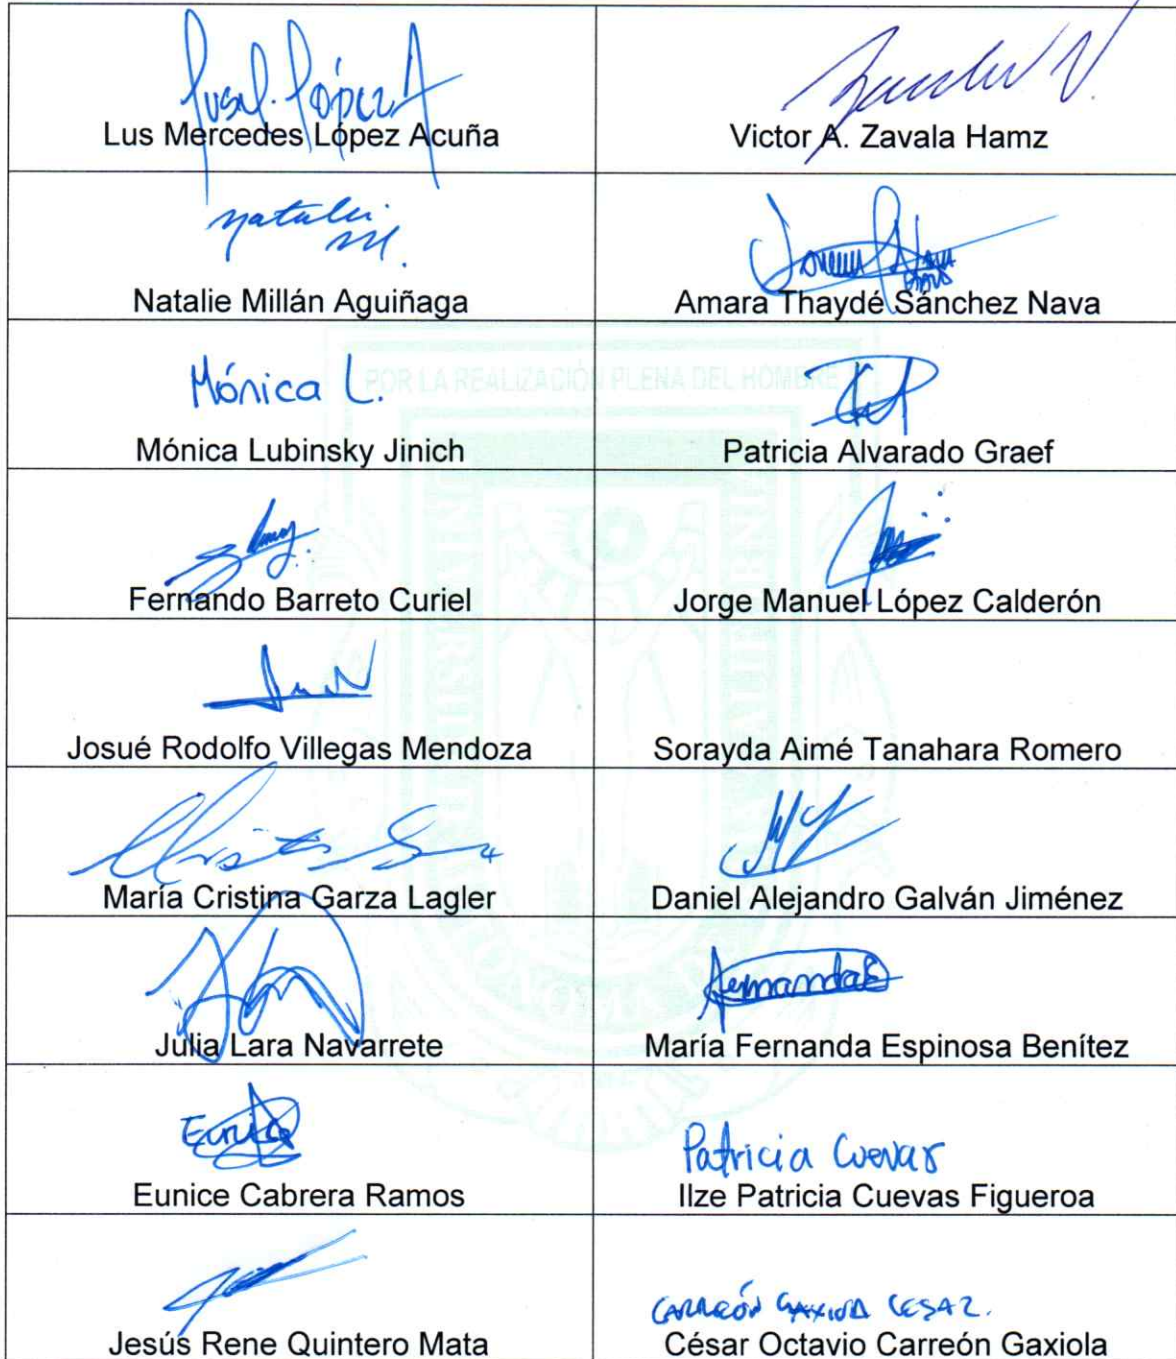 Lus Mercedes López Acuña
Victor A. Zavala Hamz
Natalie Millán Aguiñaga
Amara Thaydé Sánchez Nava
Mónica L.
POR LA REALIZACIÓN PLENA DEL HOMBRE
Mónica Lubinsky Jinich
Patricia Alvarado Graef
Fernando Barreto Curiel
Jorge Manuel López Calderón
Josué Rodolfo Villegas Mendoza
Sorayda Aimé Tanahara Romero
María Cristina Garza Lagler
Daniel Alejandro Galván Jiménez
Julia Lara Navarrete
María Fernanda Espinosa Benítez
Eunice Cabrera Ramos
Patricia Cuevas
Ilze Patricia Cuevas Figueroa
Jesús Rene Quintero Mata
CARREÓN GAXIOLA CESAR.
César Octavio Carreón Gaxiola